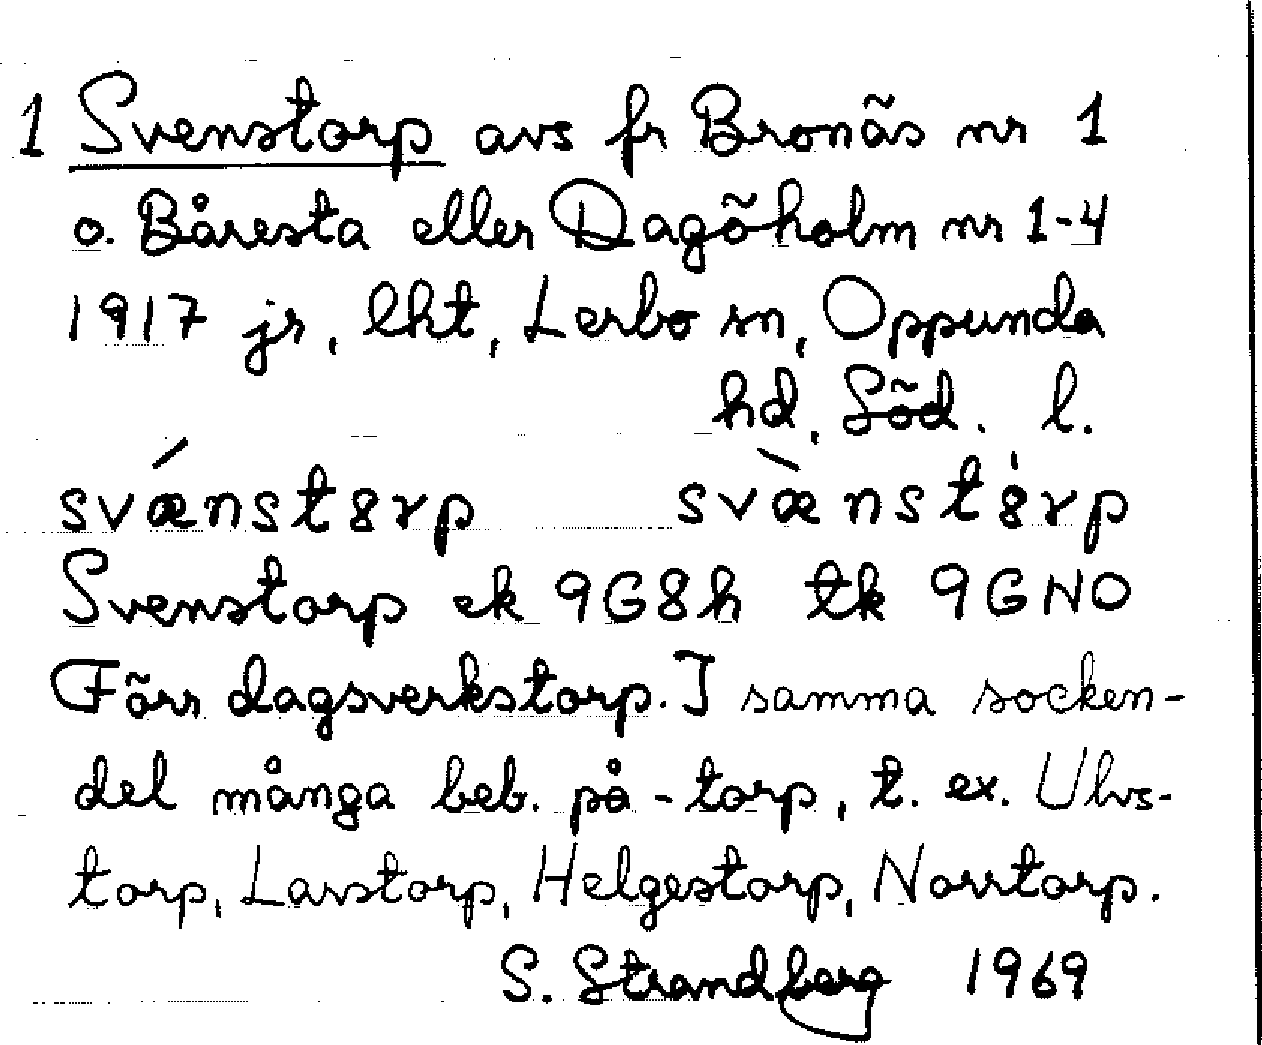 1 Svenstorp avs fr Bronäs nr 1
o. Båresta eller Dagöholm nr 1-4
1917 jr, lht, Lerbo sn, Oppunda
hd, Söd. l.
svǽnst8rp svæ̀nst8̍rp
Svenstorp ek 9G8h tk 9GNO
Förr dagsverkstorp. I samma socken-
del många beb. på -torp, t. ex. Ulvs-
torp, Lavstorp, Helgestorp, Norrtorp.
S. Strandberg 1969